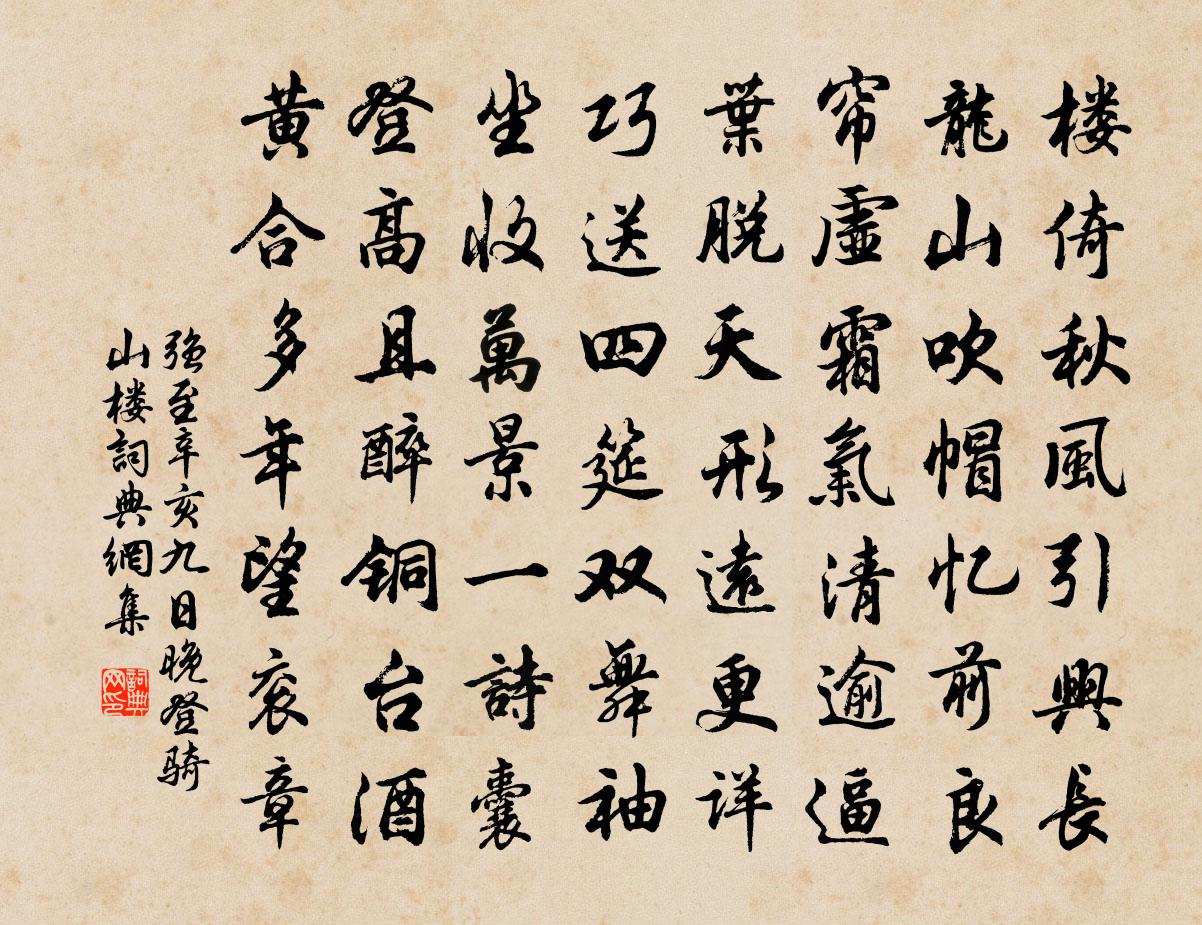 楼倚秋風引興長
龍山吹帽忆前良
帘虚霜氣清逾逼
葉脱天形遠更详
巧送四筵双舞袖
坐收萬景一詩囊
登高且醉铜台酒
黄合多年望衮章
強至辛亥九日晚登骑
山楼詞典網集
詞典
网印